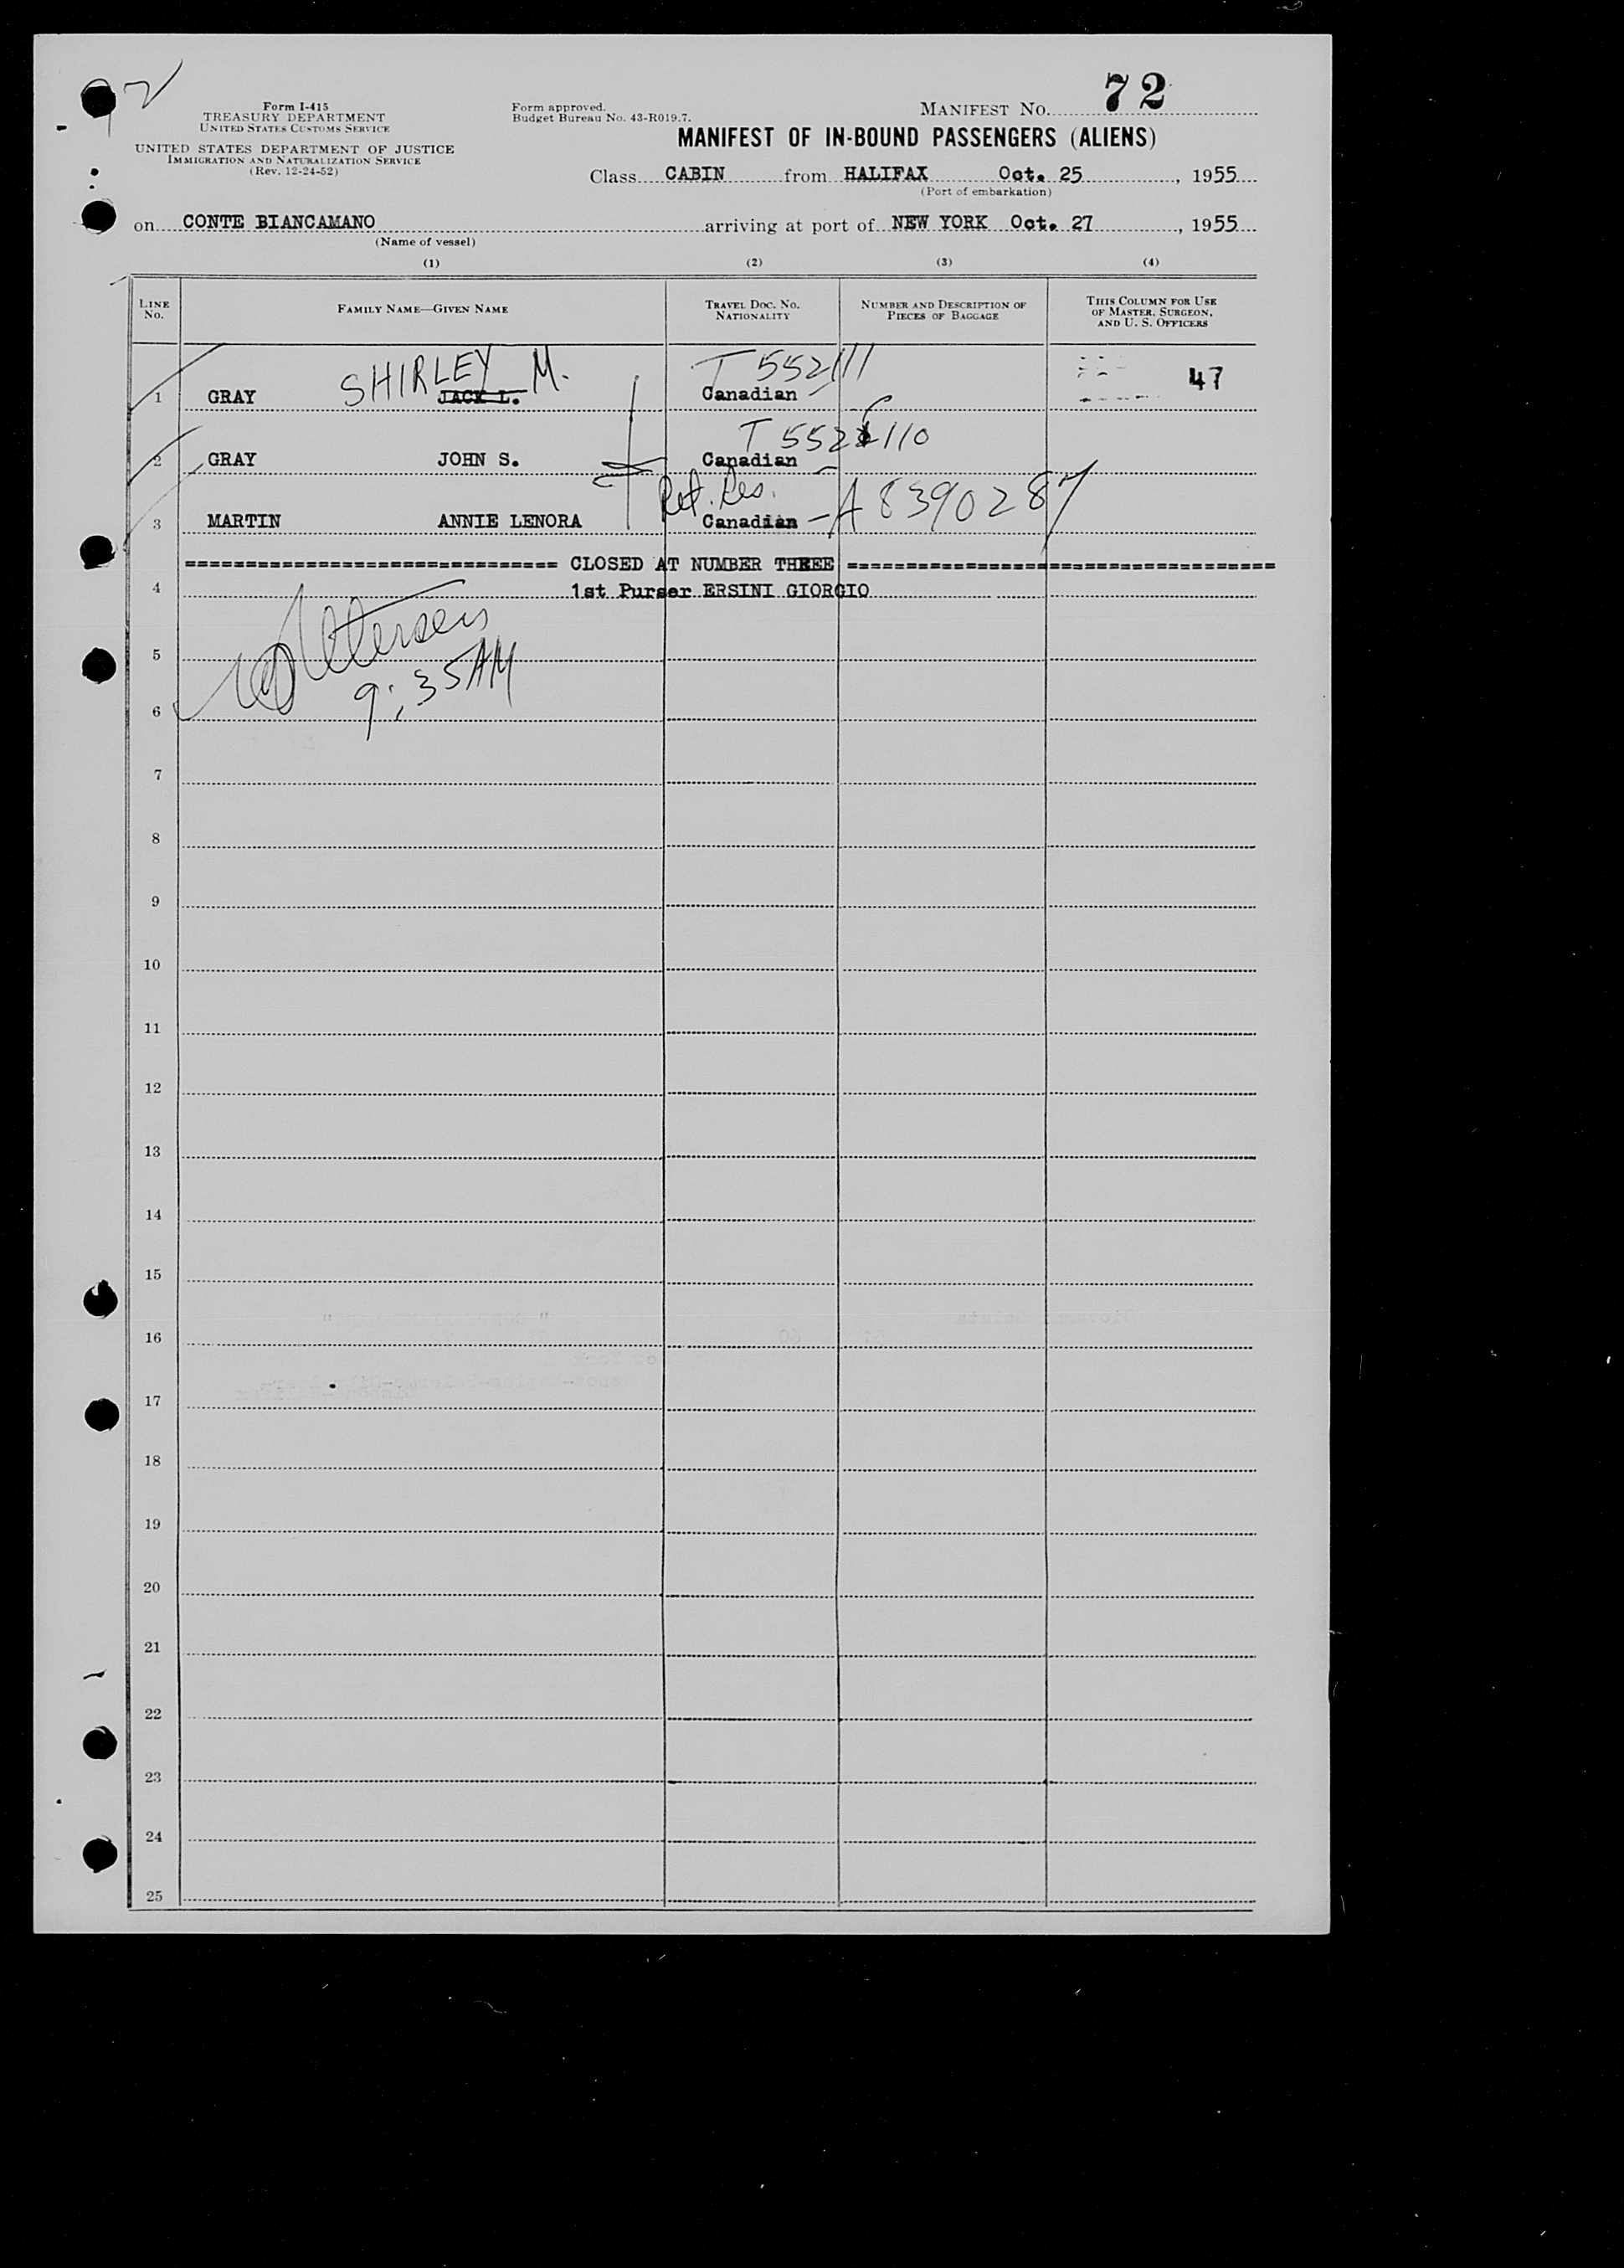 72
Form I-415
TREASURY DEPARTMENT
UNITED STATES CUSTOMS SERVICE
UNITED STATES DEPARTMENT OF JUSTICE
IMMIGRATION AND NATURALIZATION SERVICE
(Rev. 12-24-52)
Form approved.
Budget Bureau No. 43-R019.7.
MANIFEST NO.
MANIFEST OF IN-BOUND PASSENGERS (ALIENS)
Class CABIN from HALIFAX Oct. 25, 1955
(Port of embarkation)
on CONTE BIANCAMANO arriving at port of NEW YORK Oct. 27, 1955
(Name of vessel)
(1) (2) (3) (4)
LINE No. FAMILY NAME—GIVEN NAME TRAVEL DOC. NO. NATIONALITY NUMBER AND DESCRIPTION OF PIECES OF BAGGAGE THIS COLUMN FOR USE OF MASTER, SURGEON, AND U. S. OFFICERS
SHIRLEY M. T 552111
1 GRAY JACK L. Canadian 47
2 GRAY JOHN S. Canadian
Ret. Res. A 8390287
3 MARTIN ANNIE LENORA Canadian
============================== CLOSED AT NUMBER THREE ===================================
4 1st Purser ERSINI GIORGIO
5
9:35 AM
6
7
8
9
10
11
12
13
14
15
16
17
18
19
20
21
22
23
24
25